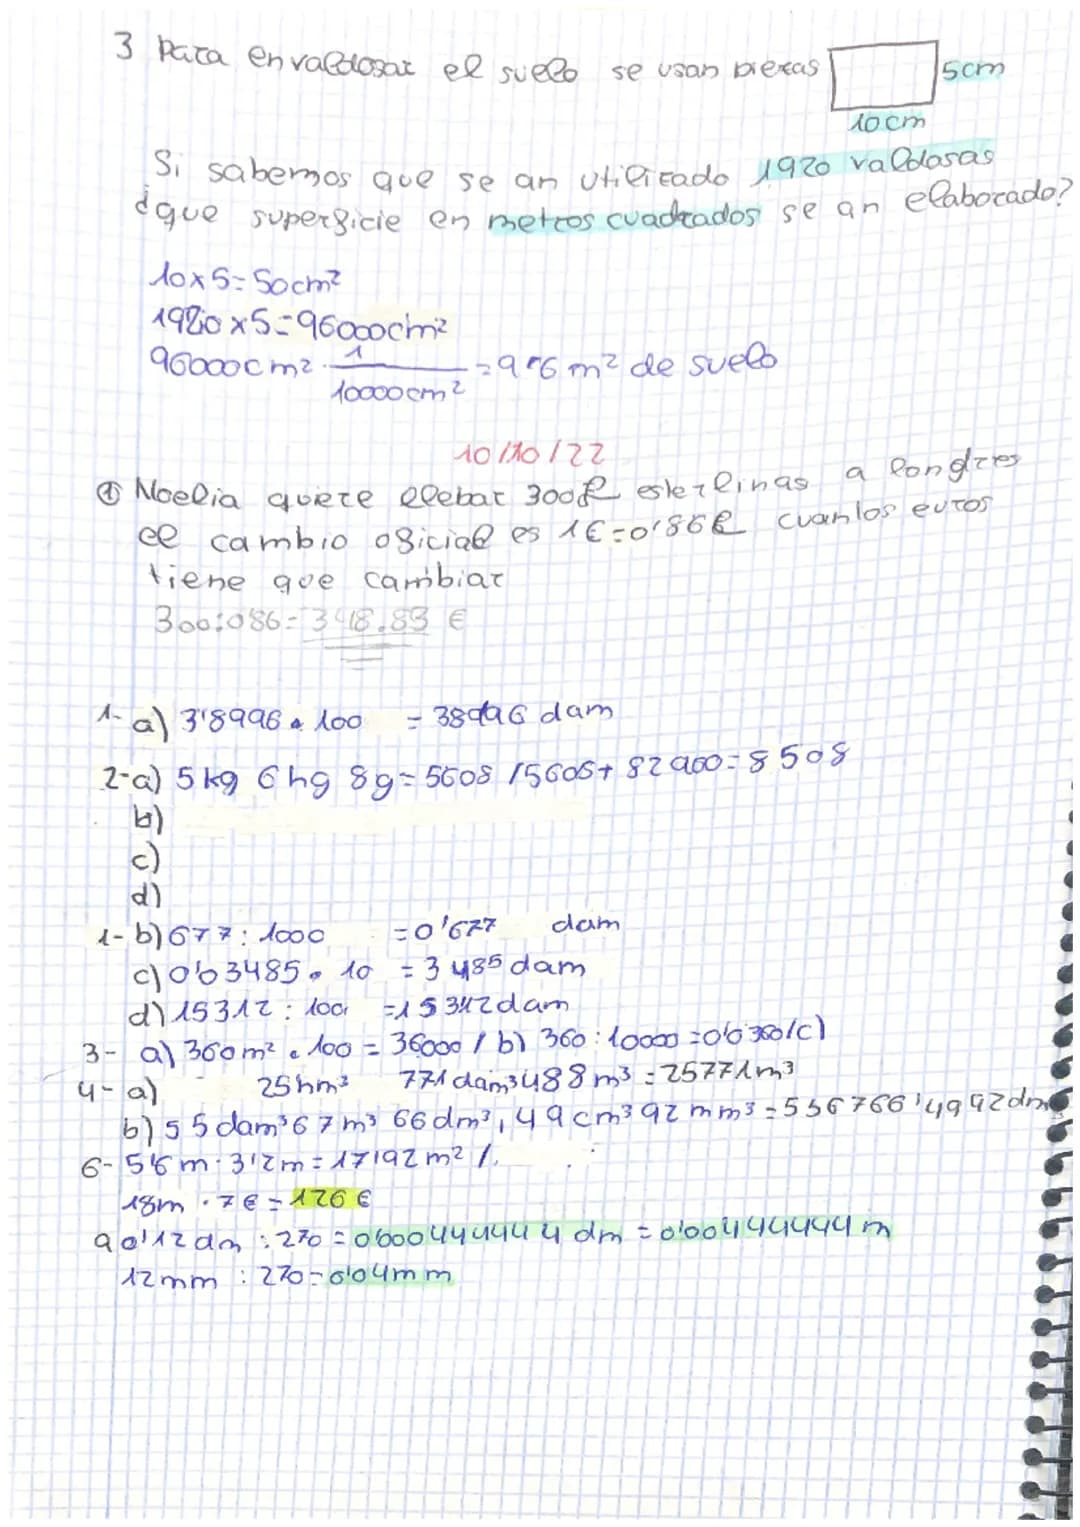 3 Para envaldosar el suelo se usan piezas
5cm
10cm
Si sabemos que se an utilizado 1920 valdosas
¿que superficie en metros cuadrados se an elaborado?
10x5=50cm²
1920x5=96000cm²
96000cm². 1/10000cm² =9'6m² de suelo
10/10/22
① Noelia quiere llebar 300£ esterlinas a londres
el cambio oficial es 1€=0'86£ cuantos euros
tiene que cambiar
300:0'86=348.83 €
1- a) 3'8996 . 100 = 38996 dam
2-a) 5kg 6hg 8g=5608 /5608+ 82900=8508
b)
c)
d)
1- b) 677: 1000 =0'677 dam
c) 0'03485 . 10 = 3485 dam
d) 15312 : 100 =15312dam
3- a) 360m² . 100 = 36000 / b) 360:10000=0'0360/c)
4- a) 25hm³ 771dam³488m³=25771m³
b) 55dam³67m³ 66dm³, 49cm³92mm³=556766'4992dm
6- 5'6m.3'2m=17'92m² /.
18m . 7€=126€
9 0'12dm :270=0'000444444dm=0'00444444m
12mm : 270=0'04mm